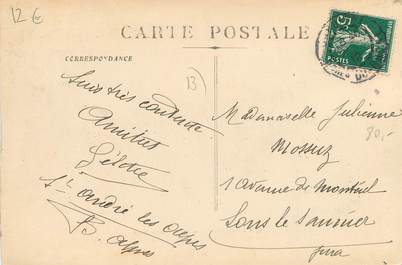 12 €
CARTE POSTALE
CORRESPONDANCE
13
Suis très contente
Amitiés
St André les alpes
B. Alpes
5c
POSTES
Mademoiselle Julienne
Mossuz
1 Avenue de Montciel
Lons le Saunier
Jura
80,-